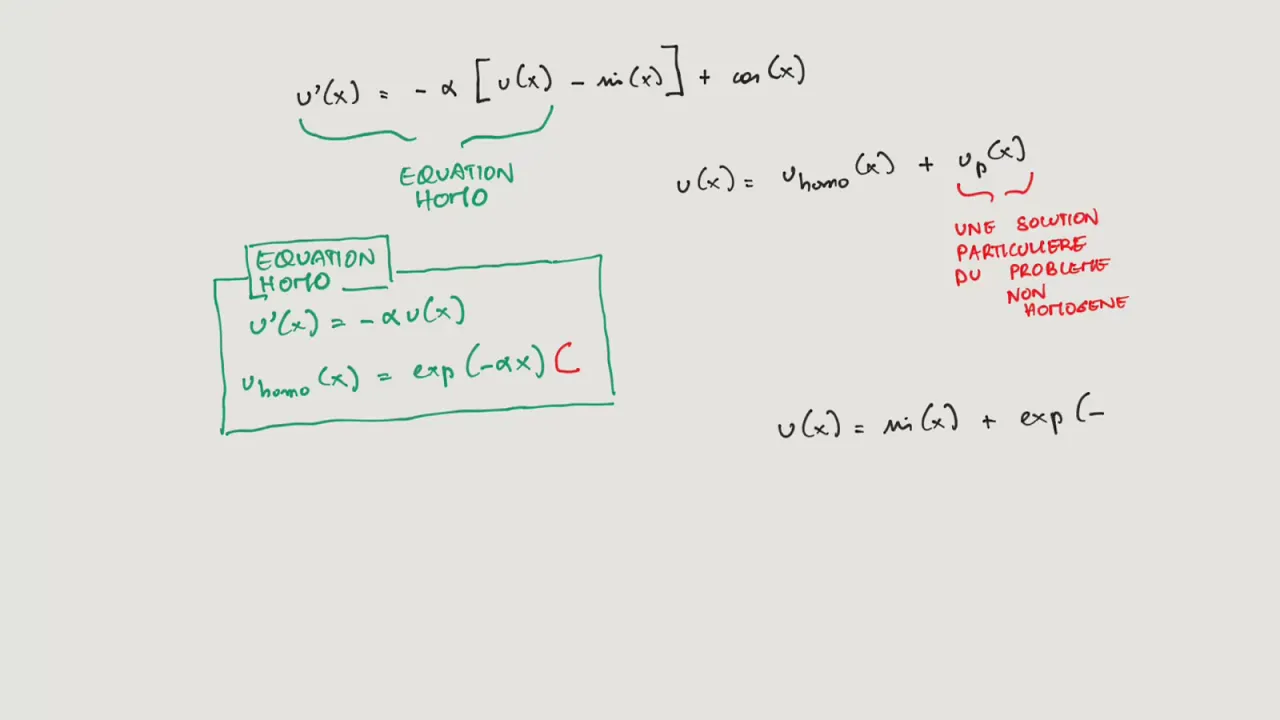 u'(x) = - α [u(x) - sin(x)] + cos(x)
EQUATION
HOMO
u(x) = u_homo(x) + u_p(x)
UNE SOLUTION
PARTICULIERE
DU PROBLEME
NON
HOMOGENE
EQUATION
HOMO
u'(x) = -αu(x)
u_homo(x) = exp(-αx) C
u(x) = sin(x) + exp(-